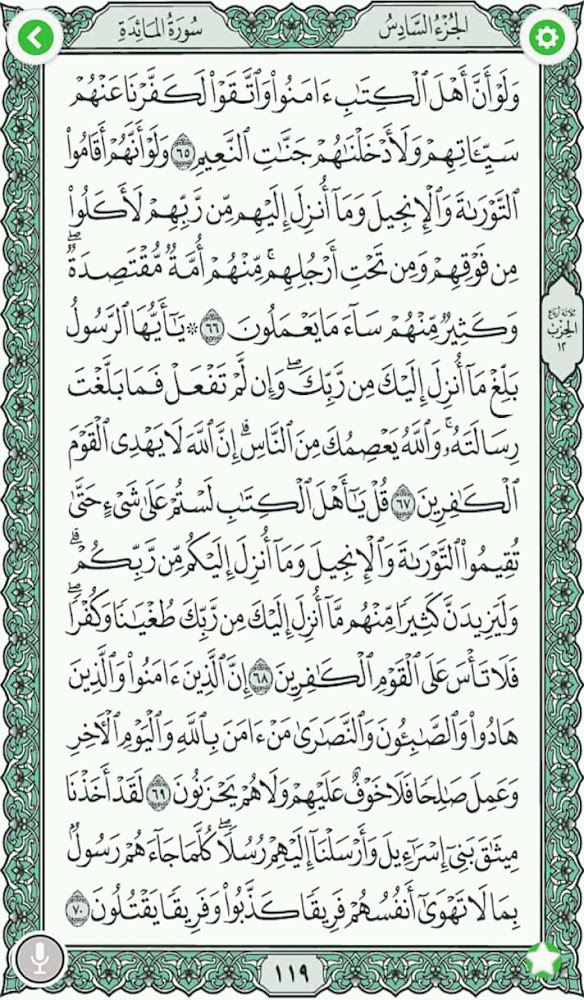 الجزء السادس
سورة المائدة
وَلَوْ أَنَّ أَهْلَ ٱلْكِتَٰبِ ءَامَنُوا۟ وَٱتَّقَوْا۟ لَكَفَّرْنَا عَنْهُمْ
سَيِّـَٔاتِهِمْ وَلَأَدْخَلْنَٰهُمْ جَنَّٰتِ ٱلنَّعِيمِ ٦٥ وَلَوْ أَنَّهُمْ أَقَامُوا۟
ٱلتَّوْرَىٰةَ وَٱلْإِنجِيلَ وَمَآ أُنزِلَ إِلَيْهِم مِّن رَّبِّهِمْ لَأَكَلُوا۟
مِن فَوْقِهِمْ وَمِن تَحْتِ أَرْجُلِهِم ۚ مِّنْهُمْ أُمَّةٌ مُّقْتَصِدَةٌ ۖ
وَكَثِيرٌ مِّنْهُمْ سَآءَ مَا يَعْمَلُونَ ٦٦ ۞ يَٰٓأَيُّهَا ٱلرَّسُولُ
بَلِّغْ مَآ أُنزِلَ إِلَيْكَ مِن رَّبِّكَ ۖ وَإِن لَّمْ تَفْعَلْ فَمَا بَلَّغْتَ
رِسَالَتَهُۥ ۚ وَٱللَّهُ يَعْصِمُكَ مِنَ ٱلنَّاسِ ۗ إِنَّ ٱللَّهَ لَا يَهْدِى ٱلْقَوْمَ
ٱلْكَٰفِرِينَ ٦٧ قُلْ يَٰٓأَهْلَ ٱلْكِتَٰبِ لَسْتُمْ عَلَىٰ شَىْءٍ حَتَّىٰ
تُقِيمُوا۟ ٱلتَّوْرَىٰةَ وَٱلْإِنجِيلَ وَمَآ أُنزِلَ إِلَيْكُم مِّن رَّبِّكُمْ ۗ
وَلَيَزِيدَنَّ كَثِيرًا مِّنْهُم مَّآ أُنزِلَ إِلَيْكَ مِن رَّبِّكَ طُغْيَٰنًا وَكُفْرًا ۖ
فَلَا تَأْسَ عَلَى ٱلْقَوْمِ ٱلْكَٰفِرِينَ ٦٨ إِنَّ ٱلَّذِينَ ءَامَنُوا۟ وَٱلَّذِينَ
هَادُوا۟ وَٱلصَّٰبِـُٔونَ وَٱلنَّصَٰرَىٰ مَنْ ءَامَنَ بِٱللَّهِ وَٱلْيَوْمِ ٱلْـَٔاخِرِ
وَعَمِلَ صَٰلِحًا فَلَا خَوْفٌ عَلَيْهِمْ وَلَا هُمْ يَحْزَنُونَ ٦٩ لَقَدْ أَخَذْنَا
مِيثَٰقَ بَنِىٓ إِسْرَٰٓءِيلَ وَأَرْسَلْنَآ إِلَيْهِمْ رُسُلًا ۖ كُلَّمَا جَآءَهُمْ رَسُولٌۢ
بِمَا لَا تَهْوَىٰٓ أَنفُسُهُمْ فَرِيقًا كَذَّبُوا۟ وَفَرِيقًا يَقْتُلُونَ ٧٠
ثلاثة أرباع
الحزب
١٢
١١٩